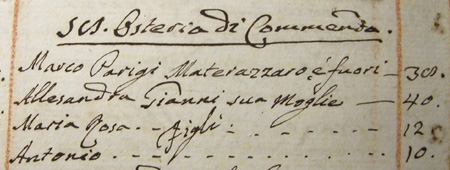 SCI. Osteria di Commenda.
Marco Parigi Materazzaro é fuori - 38.
Allesandra Gianni sua Moglie - 40.
Maria Rosa - - figli - - - - - - - 12
Antonio - - - - - - - - - - - 10.